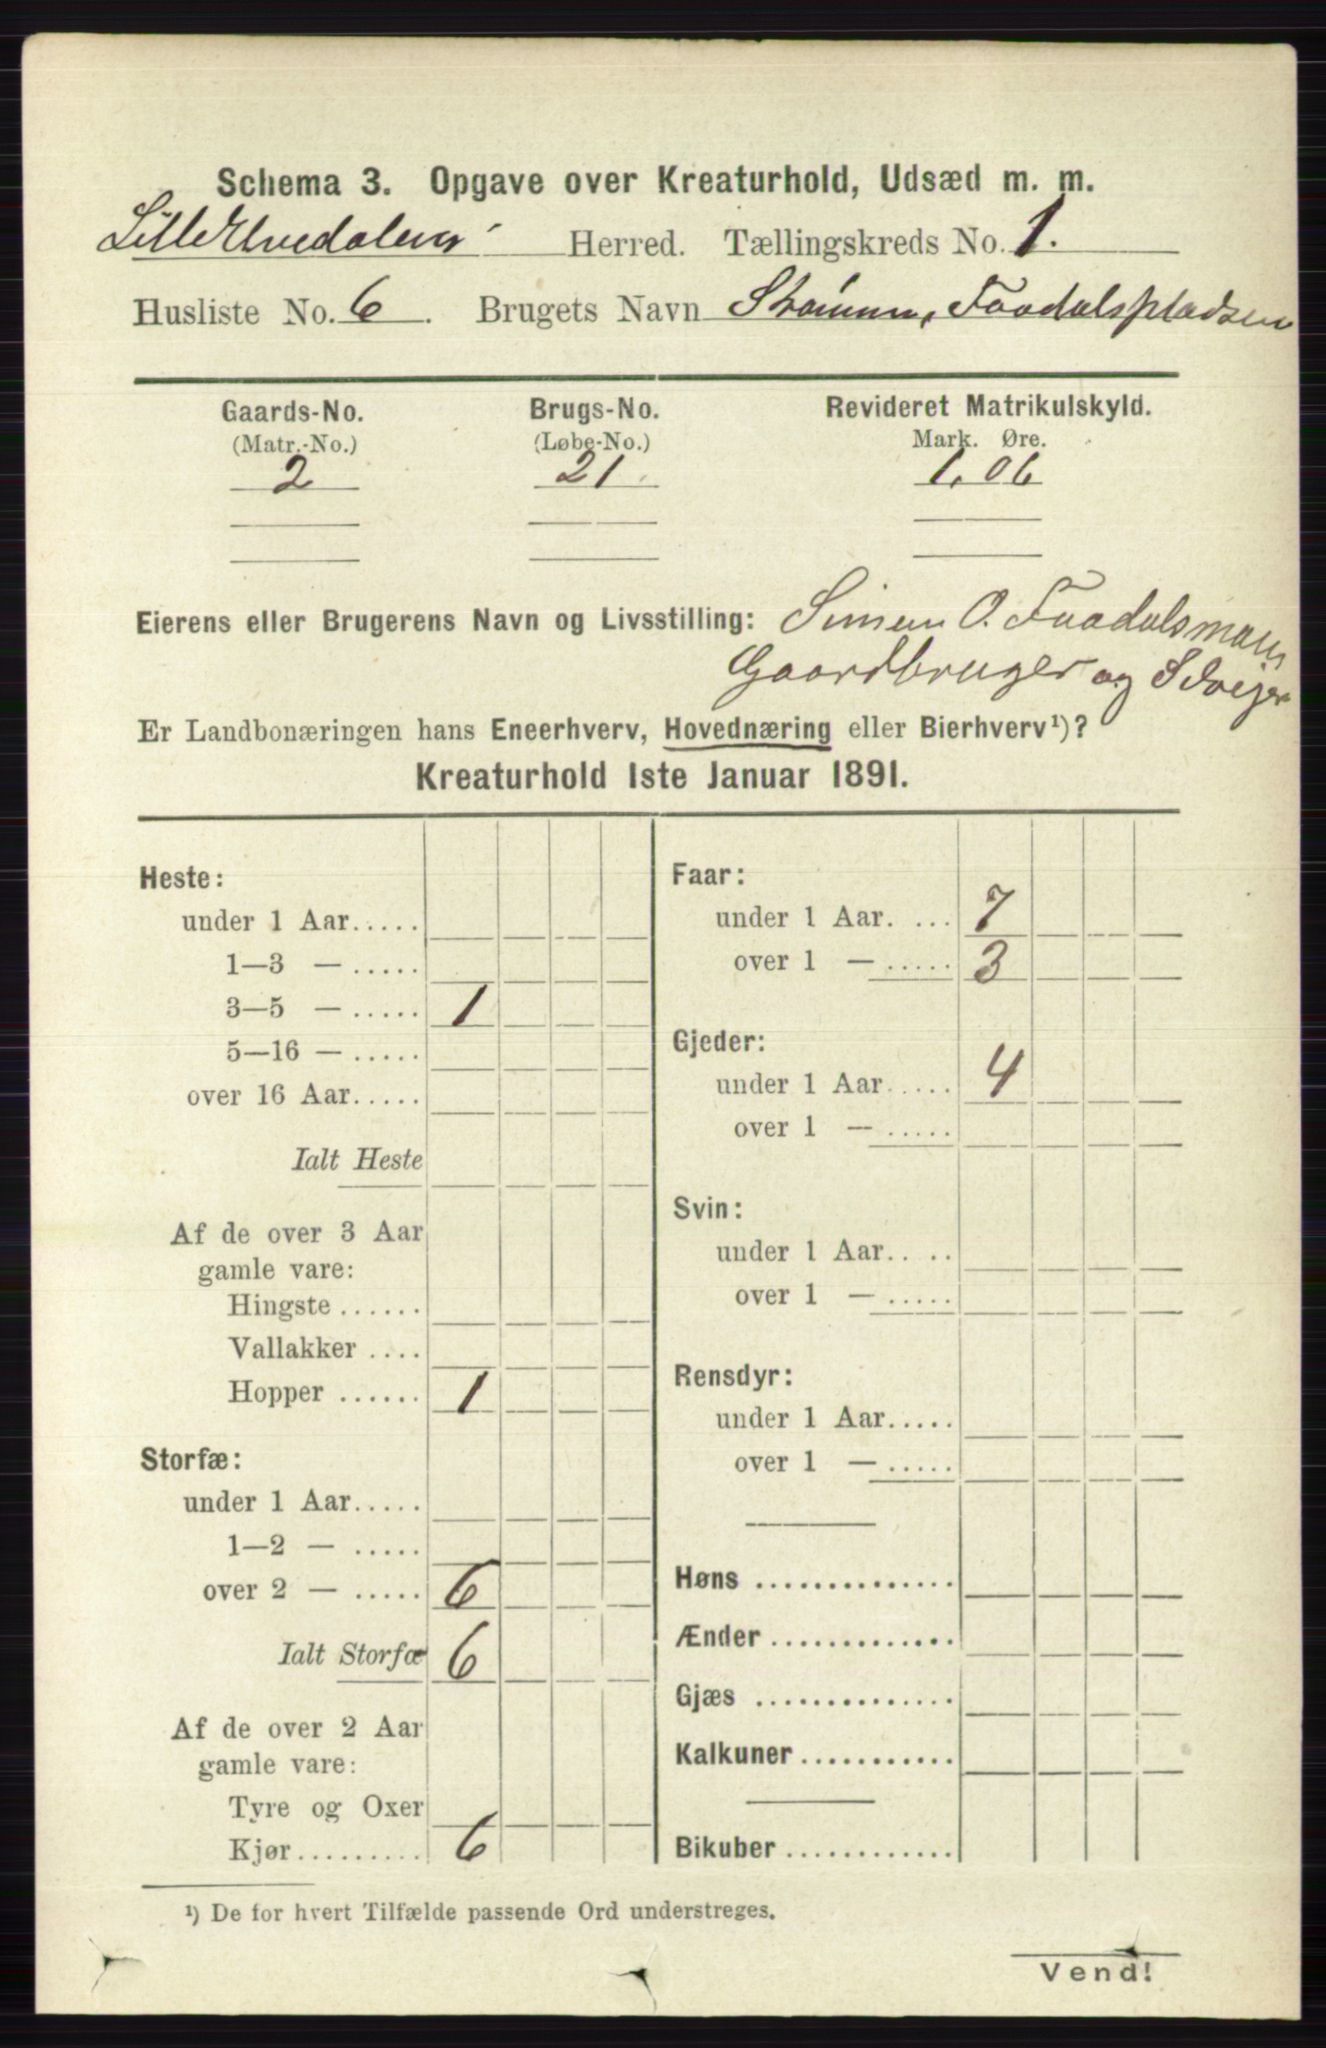 Schema 3. Opgave over Kreaturhold, Udsæd m. m.
LilleElvedalens Herred. Tællingskreds No. 1.
Husliste No. 6. Brugets Navn Strømm, Faadalspladsen
Gaards-No. Brugs-No. Revideret Matrikulskyld.
(Matr.-No.) (Løbe-No.) Mark. Øre.
2 21. 1.06
Eierens eller Brugerens Navn og Livsstilling: Simen O. Faadalsmoen
Gaardbruger og Selveier
Er Landbonæringen hans Eneerhverv, Hovednæring eller Bierhverv¹)?
Kreaturhold 1ste Januar 1891.
Heste:
under 1 Aar.....
1—3 — .....
3—5 — ..... 1
5—16 — .....
over 16 Aar.....
Ialt Heste
Af de over 3 Aar
gamle vare:
Hingste ......
Vallakker ....
Hopper ...... 1
Storfæ:
under 1 Aar.....
1—2 — .....
over 2 — ..... 6
Ialt Storfæ 6
Af de over 2 Aar
gamle vare:
Tyre og Oxer
Kjør......... 6
Faar:
under 1 Aar. ... 7
over 1 — ..... 3
Gjeder:
under 1 Aar..... 4
over 1 — .....
Svin:
under 1 Aar.. ..
over 1 — .....
Rensdyr:
under 1 Aar.....
over 1 — .....
Høns ..............
Ænder .............
Gjæs ..............
Kalkuner ...........
Bikuber ............
¹) De for hvert Tilfælde passende Ord understreges.
Vend!